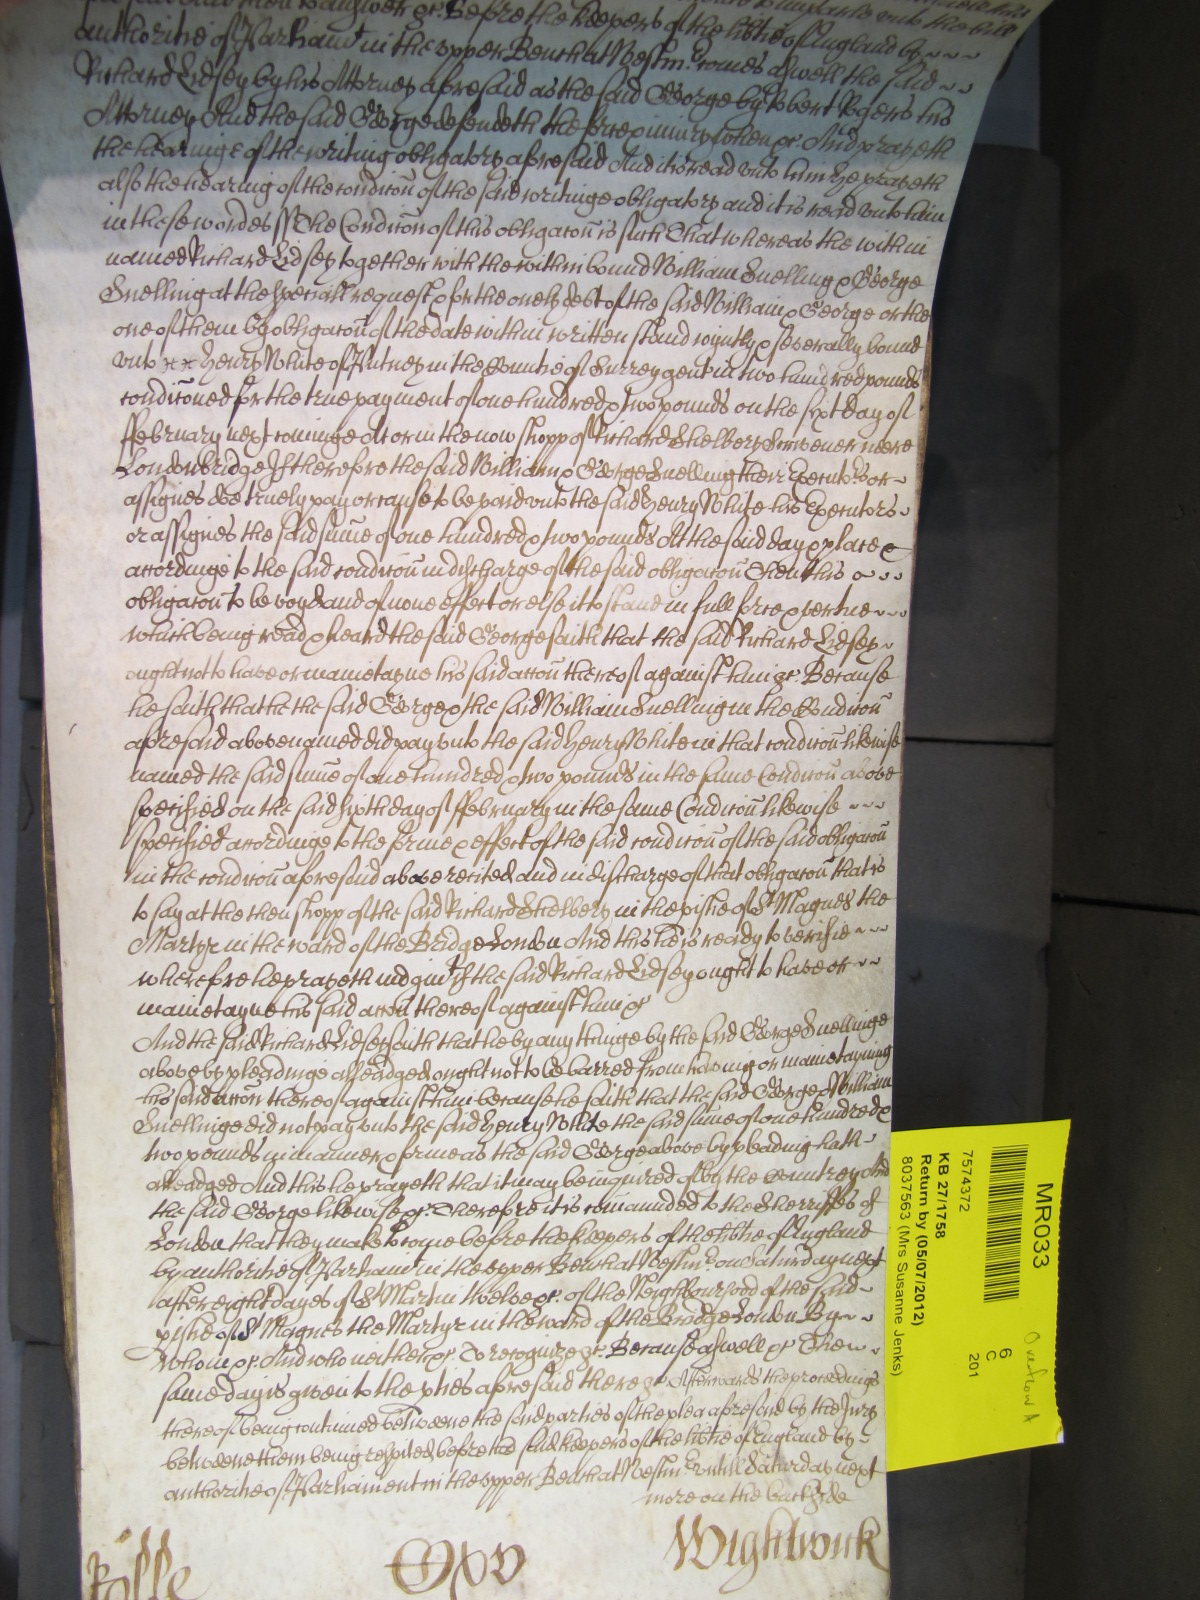 before the keepers of the libtie of England by
authoritie of Parliamt in the upper Bench at Westmr comes aswell the said
Richard Lidsey by his Attorney aforesaid as the said George by Robert Rogers his
Attorney And the said George defendeth the force iniury when &c And prayeth
the hearinge of the writing obligatory aforesaid And it is read unto him he prayeth
also the hearing of the condicōn of the said writinge obligatory and it is read unto him
in these wordes ss The Condicōn of this obligacōn is such That whereas the within
named Richard Lidsey together with the within bound William Snelling & George
Snelling at the speciall request & for the onely debt of the said William & George or the
one of them by obligacōn of the date within written stand ioyntly & severally bound
unto Henry White of Putney in the Countie of Surrey gent in two hundred pounds
condicōned for the true payment of one hundred & two pounds on the sixt day of
ffebruary next cominge At or in the now shopp of Richard Shelbery Scrivener neere
London bridge If therefore the said William & George Snelling their Executors or
assignes doe truely pay or cause to be paid unto the said Henry White his Executors
or assignes the said sum̄e of one hundred & two pounds At the said day & place
accordinge to the said condicōn in discharge of the said obligacōn Then this
obligacōn to be voyd and of none effect or else it to stand in full force & vertue
which being read & heard the said George saith that the said Richard Lidsey
ought not to have or mainetayne his said accōn thereof against him &c Because
he saith that he the said George & the said William Snelling in the Condicōn
aforesaid above named did pay unto the said Henry White in that condicōn likewise
named the said sum̄e of one hundred & two pounds in the same Condicōn above
specified on the said sixth day of ffebruary in the same Condicōn likewise
specified accordinge to the forme & effect of the said condicōn of the said obligacōn
in the condicōn aforesaid above recited and in discharge of that obligacōn that is
to say at the then shopp of the said Richard Shelbery in the pishe of St Magnes the
Martyr in the ward of the Bridge London And this he is ready to verifie
wherefore he prayeth iudgmt if the said Richard Lidsey ought to have or
mainetayne his said accōn thereof against him &c
And the said Richard Lidsey saith that he by any thinge by the said George Snellinge
above by pleadinge alleadged ought not to be barred from having or mainetayning
his said accōn thereof against him because he saith that the said George & William
Snellinge did not pay unto the said Henry White the said sum̄e of one hundred &
two pounds in manner & forme as the said George above by pleading hath
alleadged And this he prayeth that it may be inquired of by the Countrey And
the said George likewise &c Therefore it is com̄anded to the Sherriffes of
London that they make to come before the keepers of the libtie of England
by authoritie of Parliamt in the upper Bench at Westmr on Saturday next
after eight dayes of St Martin twelve &c of the Neighbourhood of the said
pishe of St Magnes the Martyr in the ward of the Bridge London By
whom &c And who neither &c To recognize &c Because aswell &c The
same day is given to the pties aforesaid there &c Afterwards the proceedings
thereof being continued betweene the said parties of the plea aforesaid by the Jury
betweene them being respited before the said keepers of the libtie of England by
authoritie of Parliament in the upper Bench at Westmr untill Saturday next
more on the backside
Rolle
Wightwick
MR033
7574372
KB 27/1758
Return by (05/07/2012)
8037563 (Mrs Susanne Jenks)
6
C
201
Overflow A